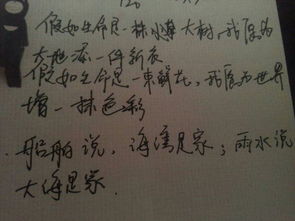 假如生命是一株小草大树,我愿为
大地添一件新衣
假如生命是一束鲜花,我愿为世界
增一抹色彩
船舶说,海湾是家;雨水说
大海是家.